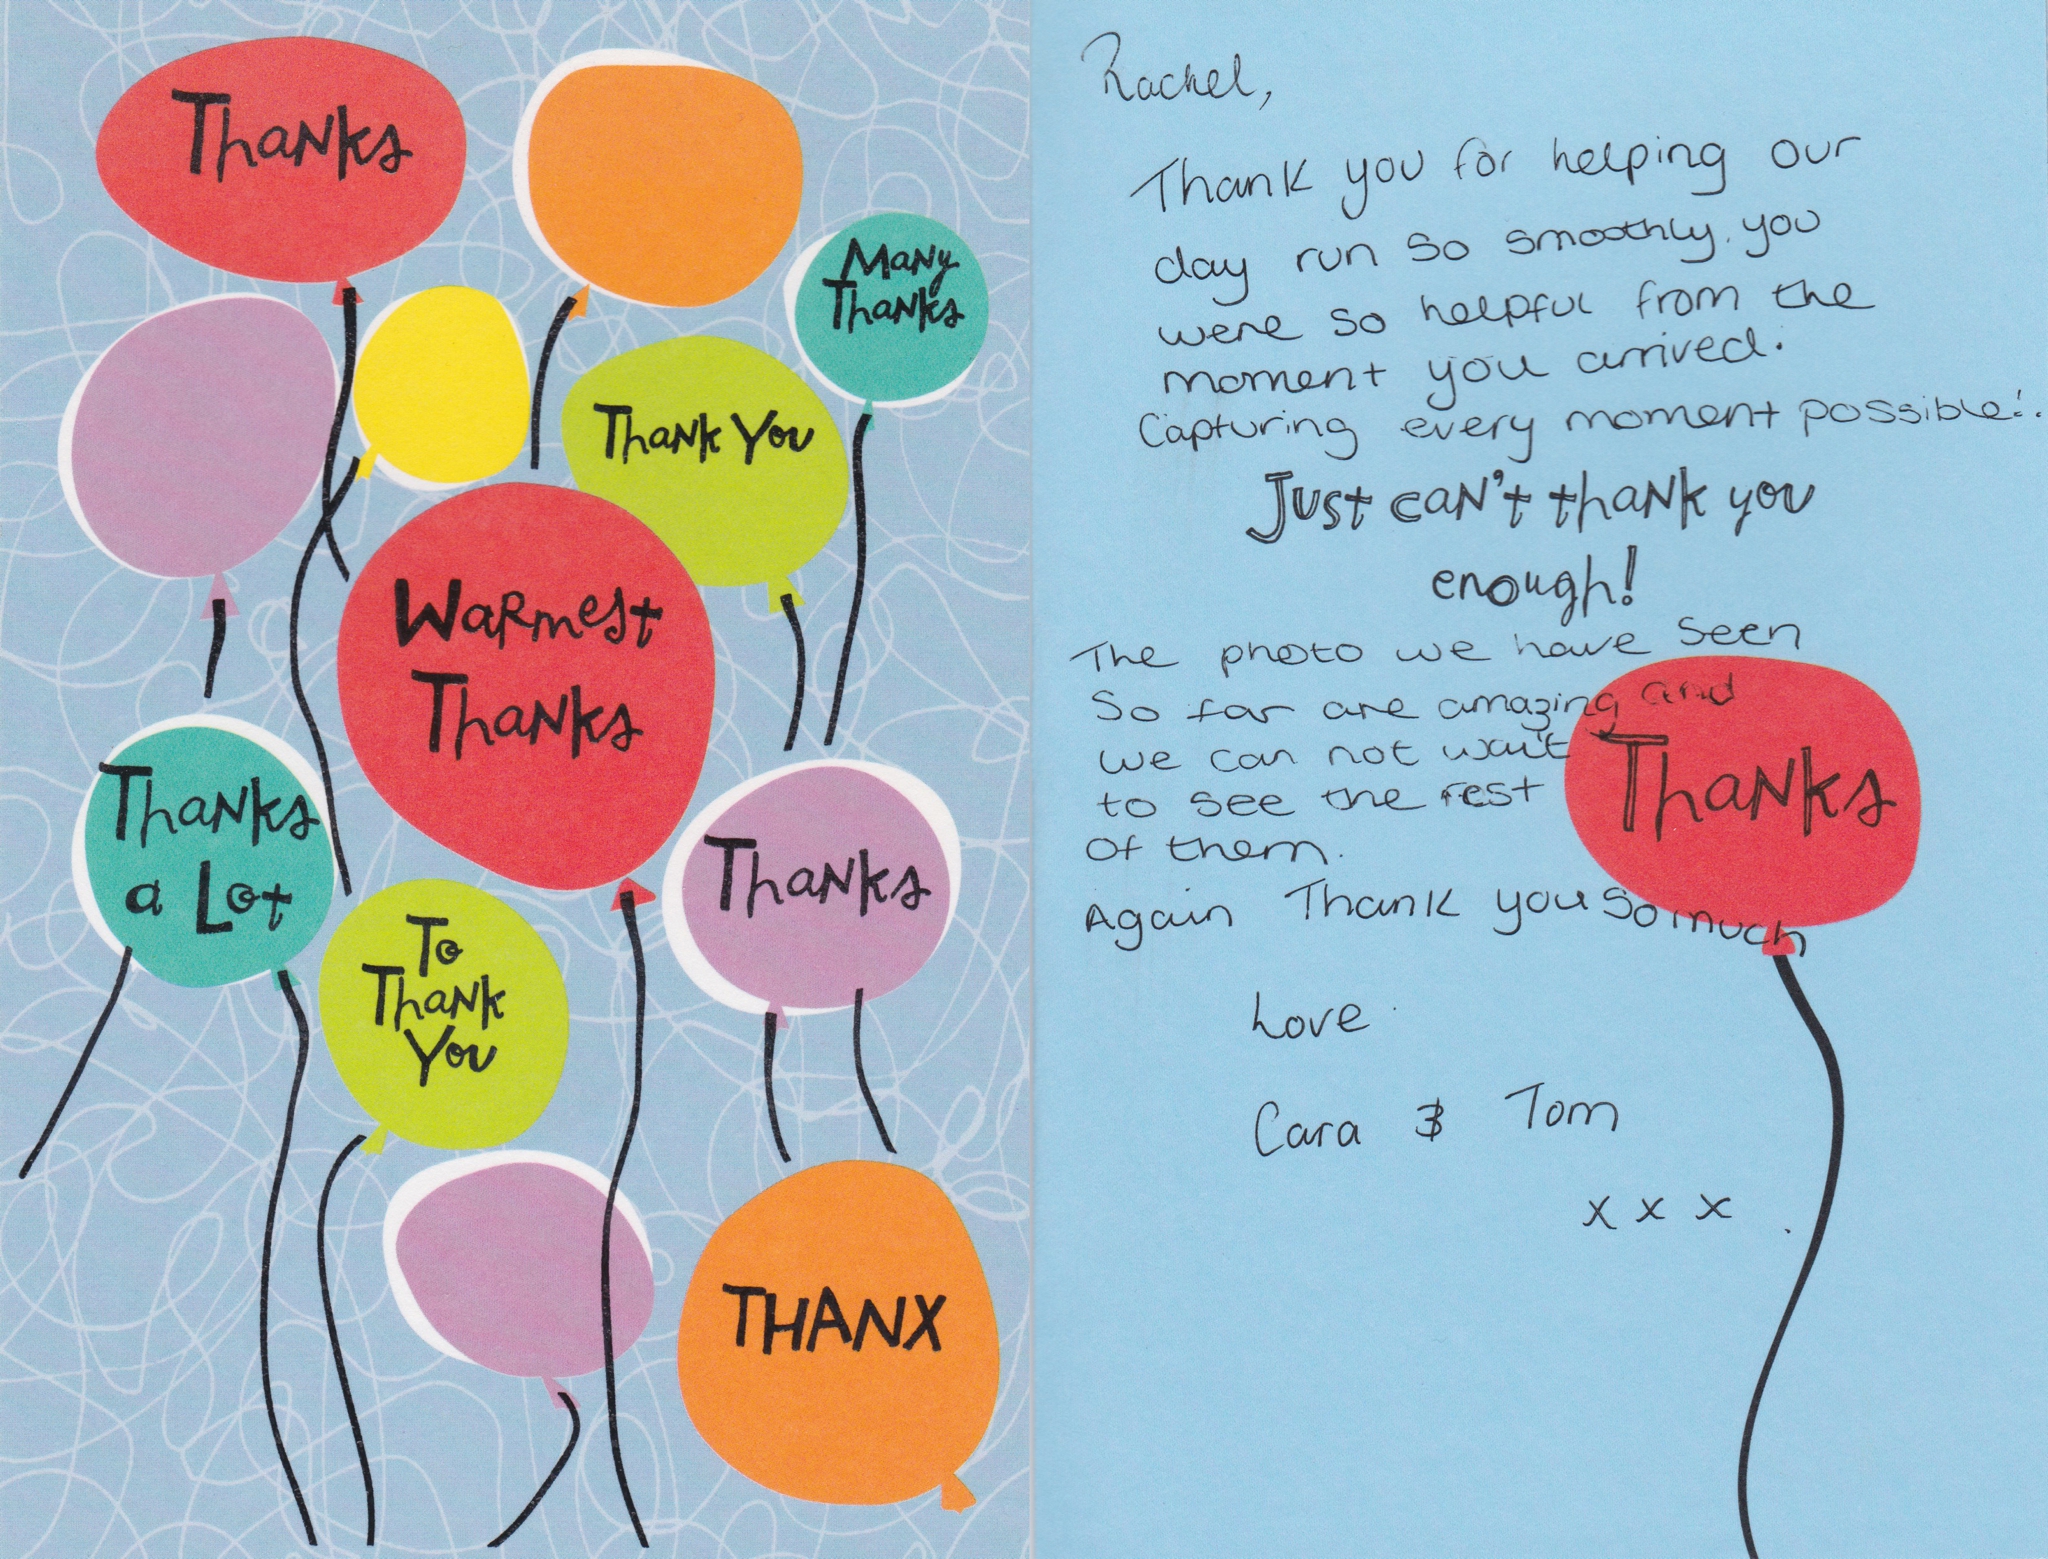 Thanks
Many
Thanks
Thank You
Warmest
Thanks
Thanks
a Lot
Thanks
To
Thank
You
THANX
Rachel,
Thank you for helping our
day run so smoothly. you
were so helpful from the
moment you arrived.
Capturing every moment possible!.
Just can't thank you
enough!
The photo we have seen
So far are amazing and
we can not wait
to see the rest
of them.
Thanks
Again Thank you so much
Love
Cara & Tom
x x x